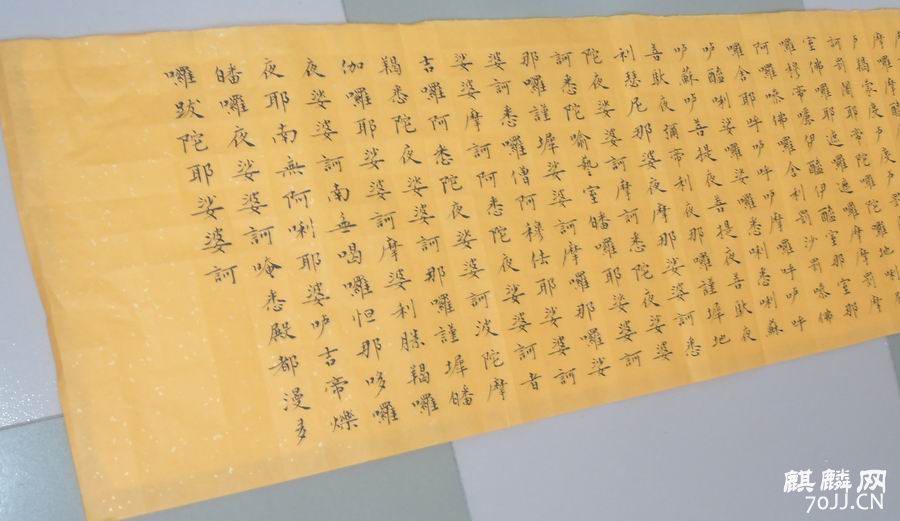 訶罰闍耶帝陀囉陀囉地唎
室佛囉耶遮囉遮囉摩摩罰摩
囉穆帝囇伊醯伊醯室那室那
阿囉嘇佛囉舍利罰沙罰嘇佛
囉舍耶呼嚧呼嚧摩囉呼嚧呼
嚧醯唎娑囉娑囉悉唎悉唎蘇
嚧蘇嚧菩提夜菩提夜菩馱夜
菩馱夜彌帝利夜那囉謹墀地
利瑟尼那婆夜摩那娑婆訶悉
陀夜娑婆訶摩訶悉陀夜娑婆
訶悉陀喻藝室皤囉耶娑婆訶
那囉謹墀娑婆訶摩囉那囉娑
婆訶悉囉僧阿穆佉耶娑婆訶
娑婆摩訶阿悉陀夜娑婆訶者
吉囉阿悉陀夜娑婆訶波陀摩
羯悉陀夜娑婆訶那囉謹墀皤
伽囉耶娑婆訶摩婆利勝羯囉
夜娑婆訶南無喝囉怛那哆囉
夜耶南無阿唎耶婆嚧吉帝爍
皤囉夜娑婆訶唵悉殿都漫多
囉跋陀耶娑婆訶
麒麟网
70JJ.CN